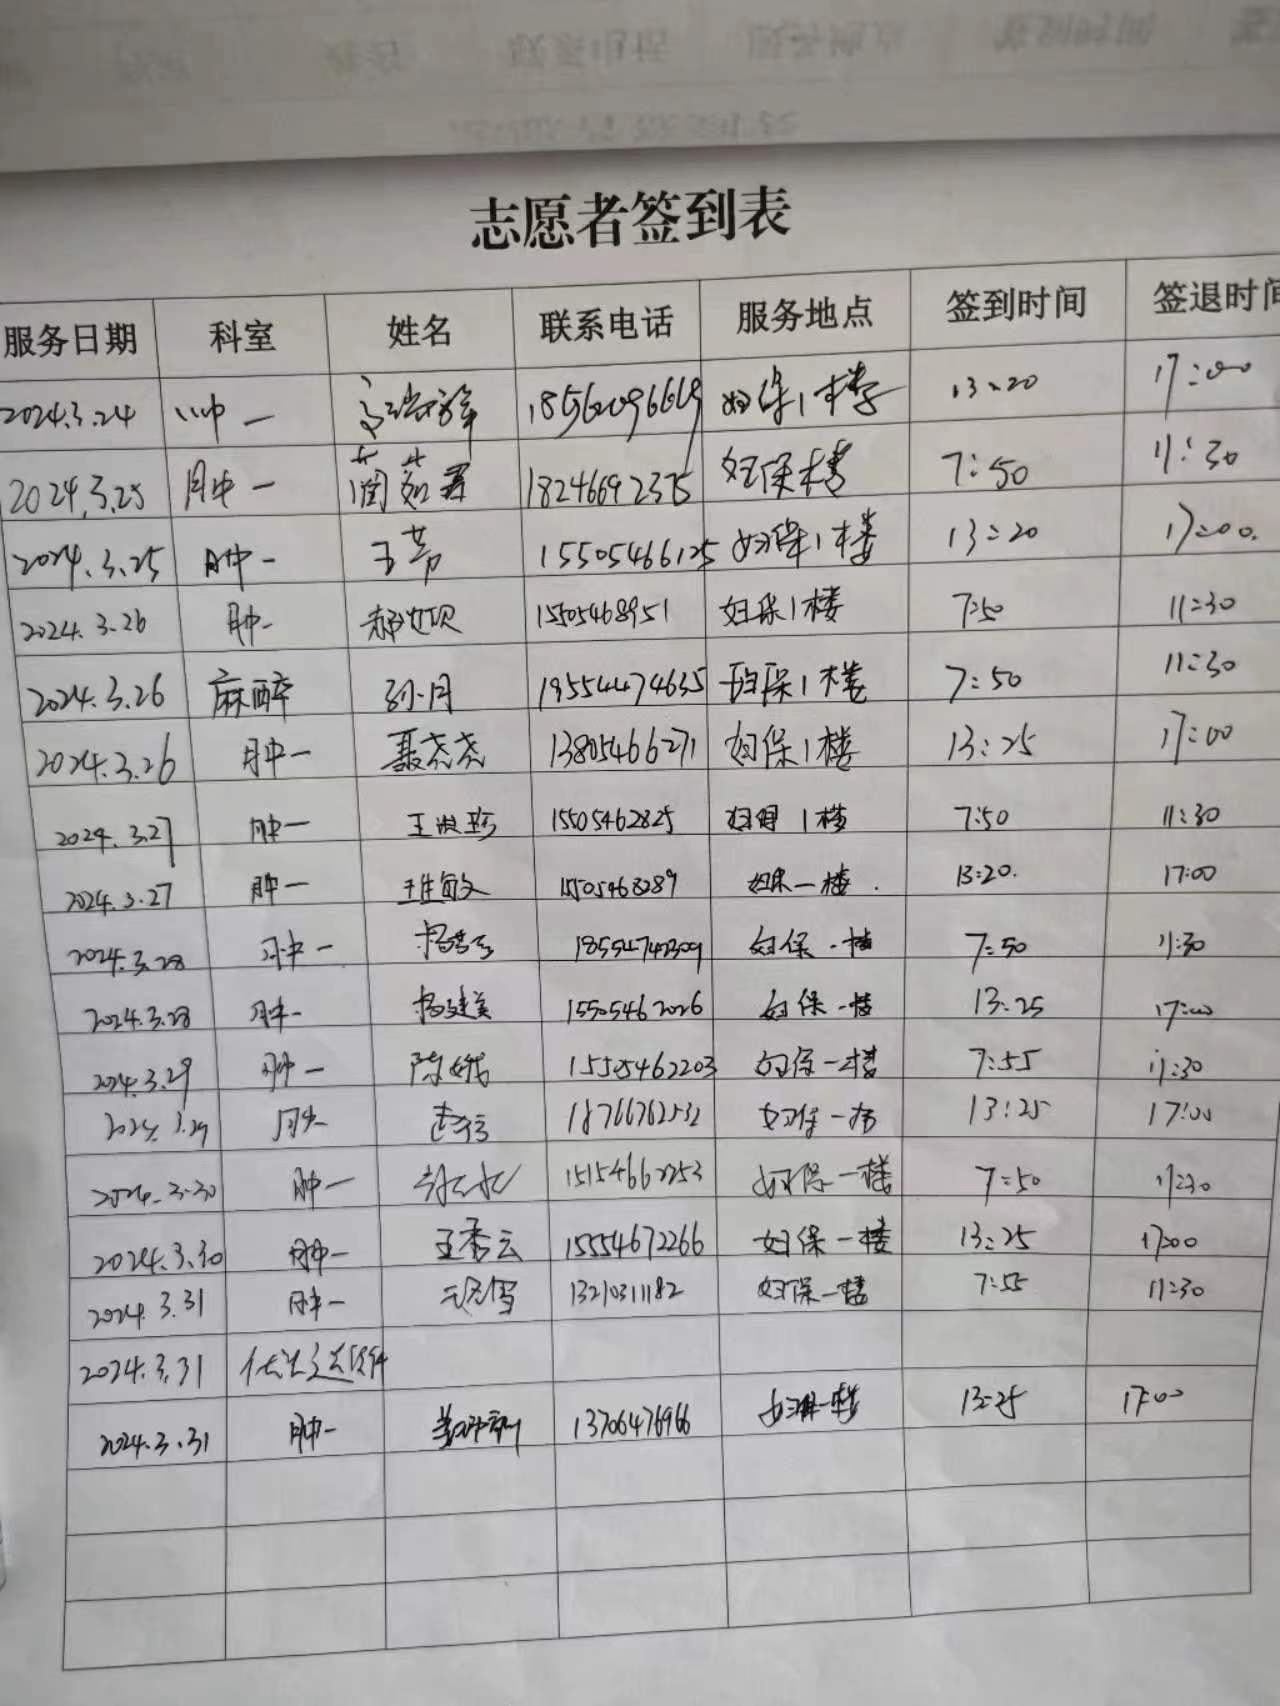 志愿者签到表
服务日期 科室 姓名 联系电话 服务地点 签到时间 签退时间
2024.3.24 肿一 18562096669 妇保1楼 13:20 17:00
2024.3.25 肿一 蔺茹 18246692375 妇保楼 7:50 11:30
2024.3.25 肿一 王芳 15505466125 妇保1楼 13:20 17:00.
2024.3.26 肿一 15505468951 妇保1楼 7:50 11:30
2024.3.26 麻醉 孙月 19554474635 妇保1楼 7:50 11:30
2024.3.26 肿一 聂尧尧 13805466271 妇保1楼 13:25 17:00
2024.3.27 肿一 王淑珍 15505462825 妇保1楼 7:50 11:30
2024.3.27 肿一 15505468289 妇保一楼. 13:20. 17:00
2024.3.28 肿一 妇保一楼 7:50 11:30
2024.3.28 肿一 杨建美 15505462026 妇保一楼 13:25 17:00
2024.3.29 肿一 陈娥 15505462203 妇保一楼 7:55 11:30
2024.3.29 肿一 18766762532 妇保一楼 13:25 17:00
2024.3.30 肿一 15154662253 妇保一楼 7:50 11:30
2024.3.30 肿一 王秀云 15554672266 妇保一楼 13:25 17:00
2024.3.31 肿一 13210311182 妇保一楼 7:55 11:30
2024.3.31
2024.3.31 肿一 13706476966 妇保一楼 13:25 17:00